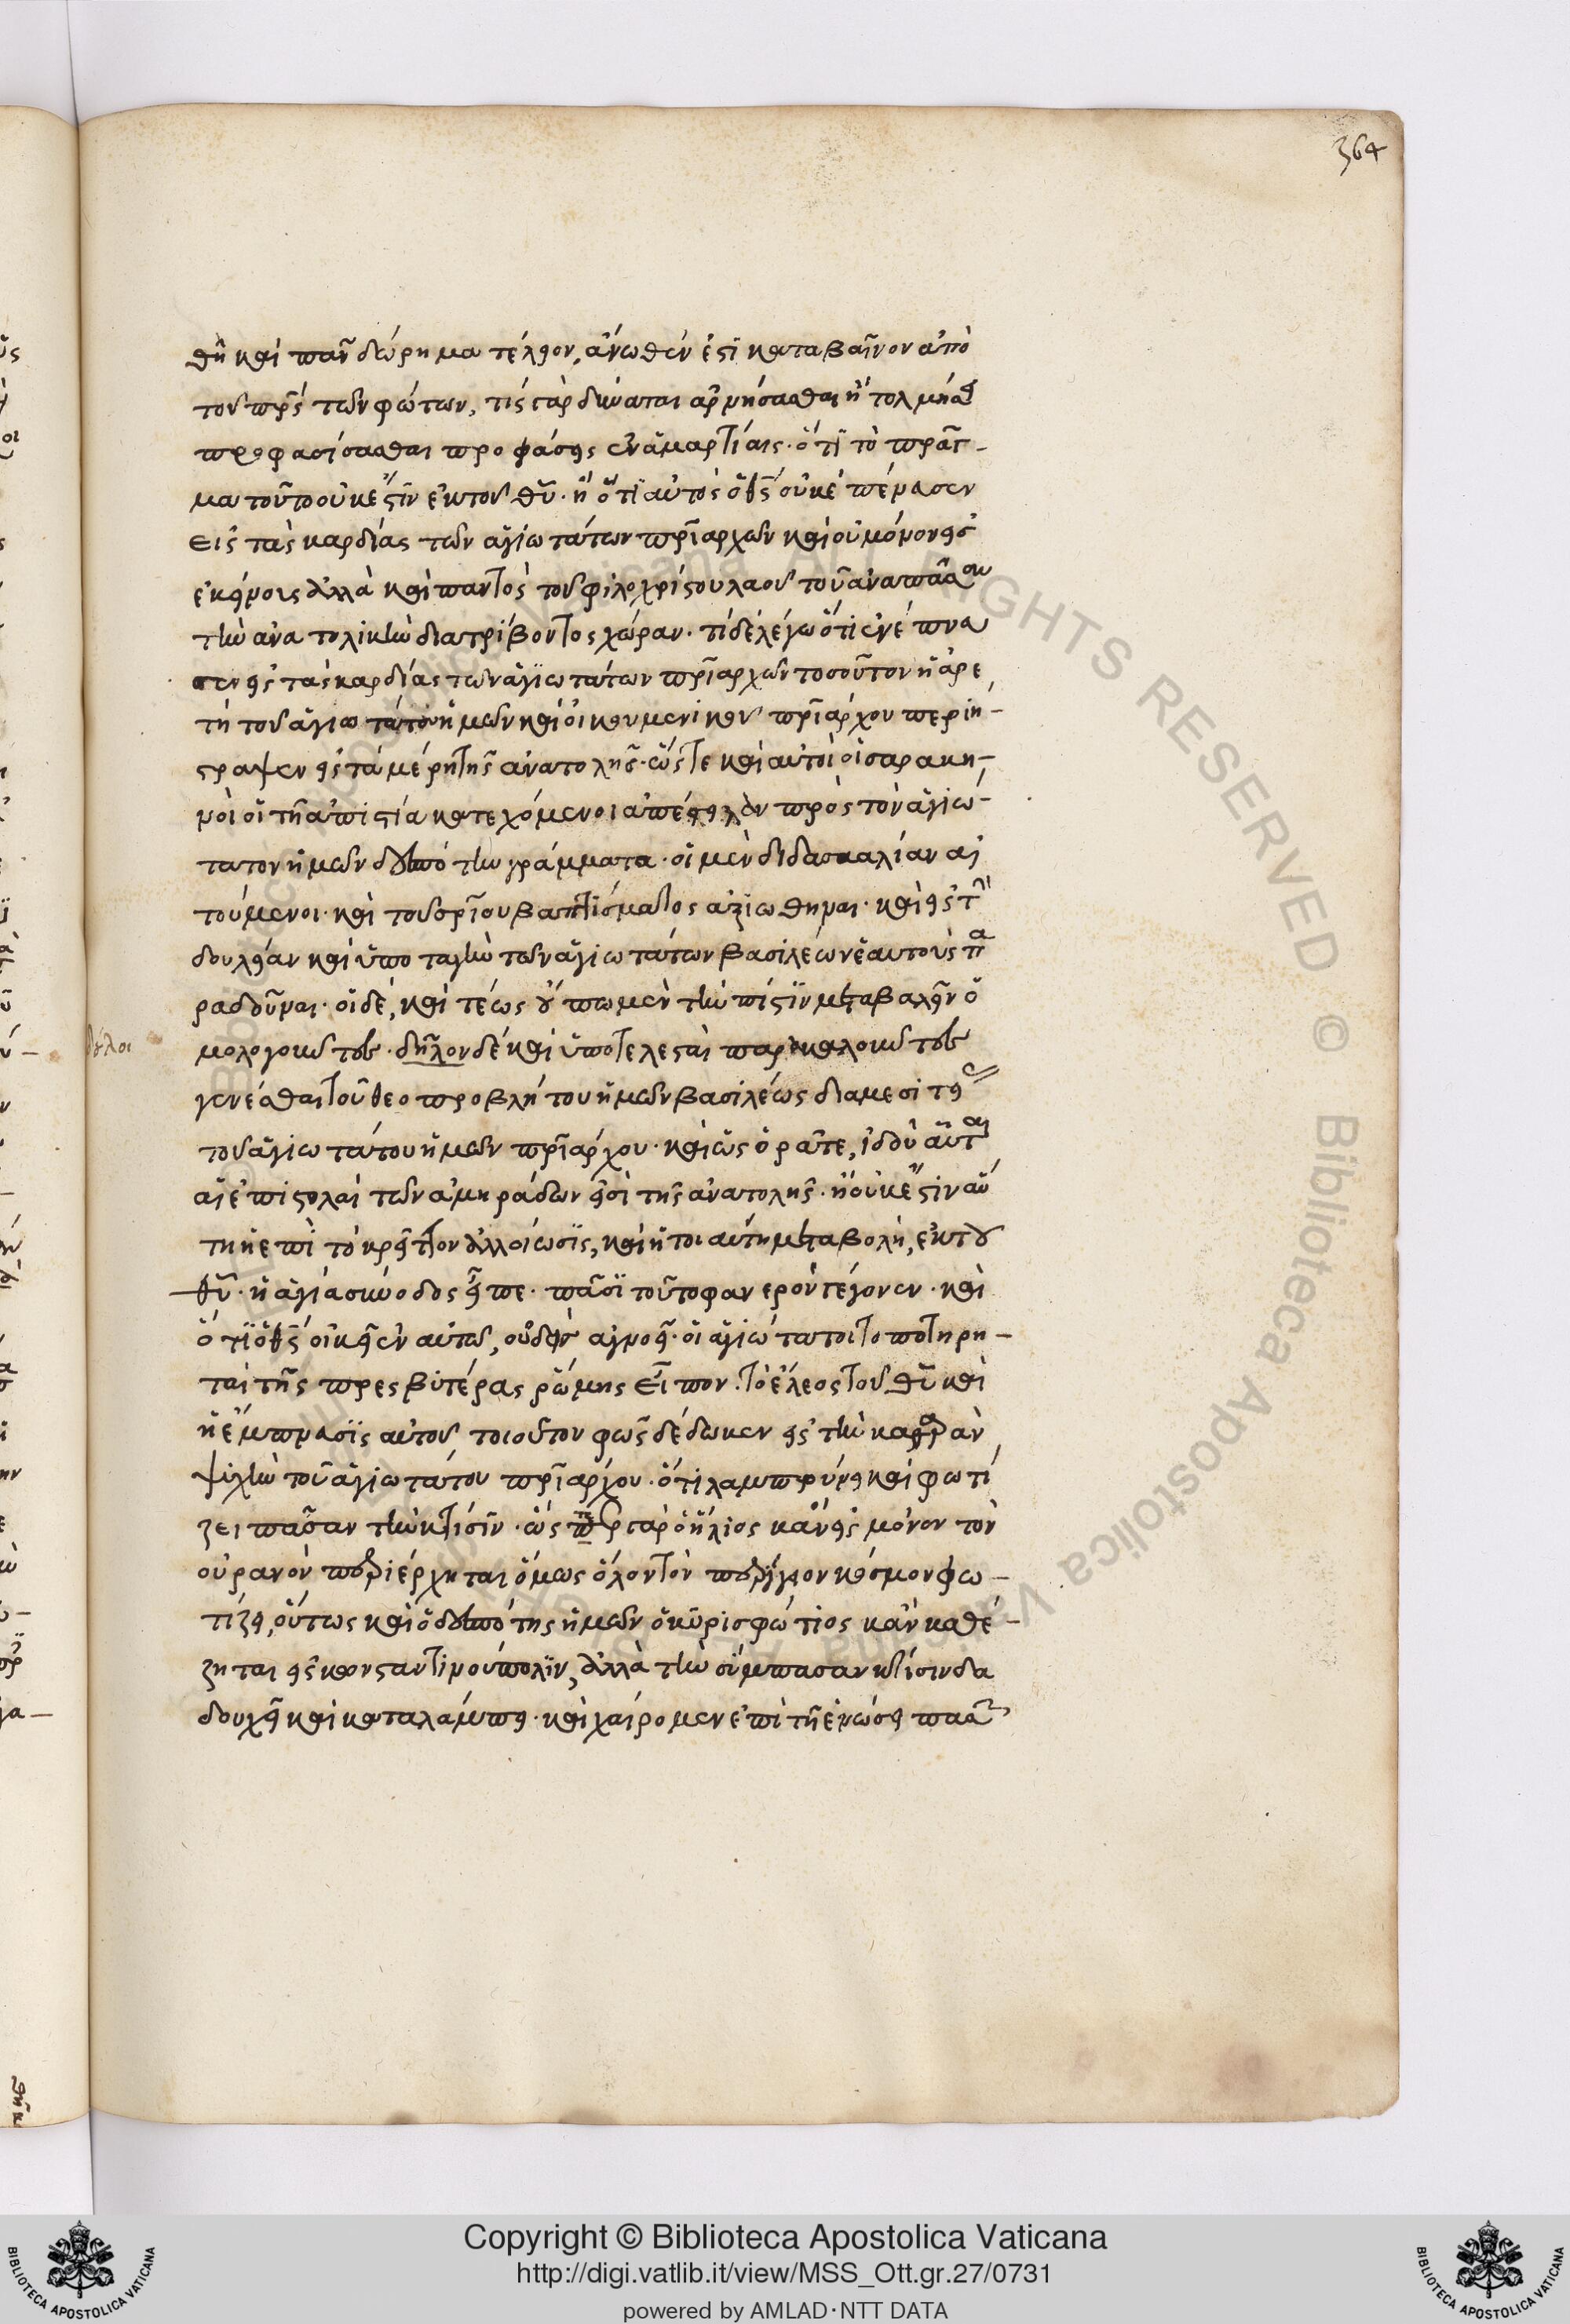 364
θὴ καὶ πᾶν δώρημα τέλειον, ἄνωθέν ἐστι καταβαῖνον ἀπὸ
τοῦ πρς τῶν φώτων, τίς γὰρ δύναται ἀρνήσασθαι ἢ τολμήσει
προφασίσασθαι προφάσεις ἐν ἁμαρτίαις· ὅτι τὸ πρᾶγ-
μα τοῦτο οὐκ ἔστιν ἐκ τοῦ θυ· ἢ ὅτι αὐτὸς ὁ θς οὐκ ἔπνασεν
εἰς τὰς καρδίας τῶν ἁγιωτάτων πριαρχῶν καὶ οὐ μόνον εἰς
ἐκείνοις ἀλλὰ καὶ παντὸς τοῦ φιλοχρίστου λαοῦ τοῦ ἀνα πᾶσαν
τὴν ἀνατολικὴν διατρίβοντος χώραν· τί δὲ λέγω ὅτι ἐνέπνευ
σεν εἰς τὰς καρδίας τῶν ἁγιωτάτων πριαρχῶν τοσοῦτον ἡ ἀρε
τὴ τοῦ ἁγιωτάτου ἡμῶν καὶ οἰκουμενικοῦ πριάρχου περιή-
στραψεν εἰς τὰ μέρη τῆς ἀνατολῆς· ὥστε καὶ αὐτοὶ οἱ σαρακη-
νοὶ οἱ τῆ ἀπιστία κατεχόμενοι ἀπέστειλαν πρὸς τὸν ἁγιώ-
τατον ἡμῶν δεσπότην γράμματα· οἱ μὲν διδασκαλίαν αἰ
τούμενοι· καὶ τοῦ σρίου βαπτίσματος ἀξιωθῆναι· καὶ εἰς τὴν
δουλείαν καὶ ὑποταγὴν τῶν ἁγιωτάτων βασιλέων ἑαυτοὺς πα
ραδοῦναι· οἱ δέ, καὶ τέως οὔπω μὲν τὴν πίστιν μεταβαλεῖν ὁ
μολογοῦντες· δῆλον δὲ καὶ ὑποτελεσταὶ παρακαλοῦντες
δῆλοι
γενέσθαι τοῦ θεοπροβλήτου ἡμῶν βασιλέως δια μεσιτείας
τοῦ ἁγιωτάτου ἡμῶν πριάρχου· καὶ ὡς ὁρᾶτε, ἰδοὺ αὗται
αἱ ἐπιστολαὶ τῶν ἀμηράδων εἰσὶ τῆς ἀνατολῆς· ἢ οὐκ ἔστιν αὕ
τη ἡ ἐπὶ τὸ κρεῖττον ἀλλοίωσις, καὶ ἡ τοιαύτη μεταβολή, ἐκ τοῦ
θυ· ἡ ἁγία σύνοδος εἶπε· πᾶσι τοῦτο φανερὸν γέγονεν· καὶ
ὅτι ὁ θς οἰκεῖ ἐν αὐτῶ, οὐδεὶς ἀγνοεῖ· οἱ ἁγιώτατοι τοποτηρη-
ταὶ τῆς πρεσβυτέρας ῥώμης εἶπον· τὸ ἔλεος τοῦ θυ καὶ
ἡ ἔμπνασις αὐτοῦ τοιοῦτον φῶς δέδωκεν εἰς τὴν καθαρὰν
ψυχὴν τοῦ ἁγιωτάτου πριάρχου· ὅτι λαμπρύνει καὶ φωτί
ζει πᾶσαν τὴν κτίσιν· ὥσπερ γὰρ ὁ ἥλιος κἂν εἰς μόνον τὸν
οὐρανὸν περιέρχηται ὅμως ὅλον τὸν περίγειον κόσμον φω-
τίζει, οὕτως καὶ ὁ δεσπότης ἡμῶν ὁ κῦρις φώτιος κἂν καθέ-
ζηται εἰς κονσταντινούπολιν, ἀλλὰ τὴν σύμπασαν κτίσιν δα
δουχεῖ καὶ καταλάμπει· καὶ χαίρομεν ἐπὶ τῆ ἑνώσει πάσης
Copyright © Biblioteca Apostolica Vaticana
http://digi.vatlib.it/view/MSS_Ott.gr.27/0731
powered by AMLAD·NTT DATA